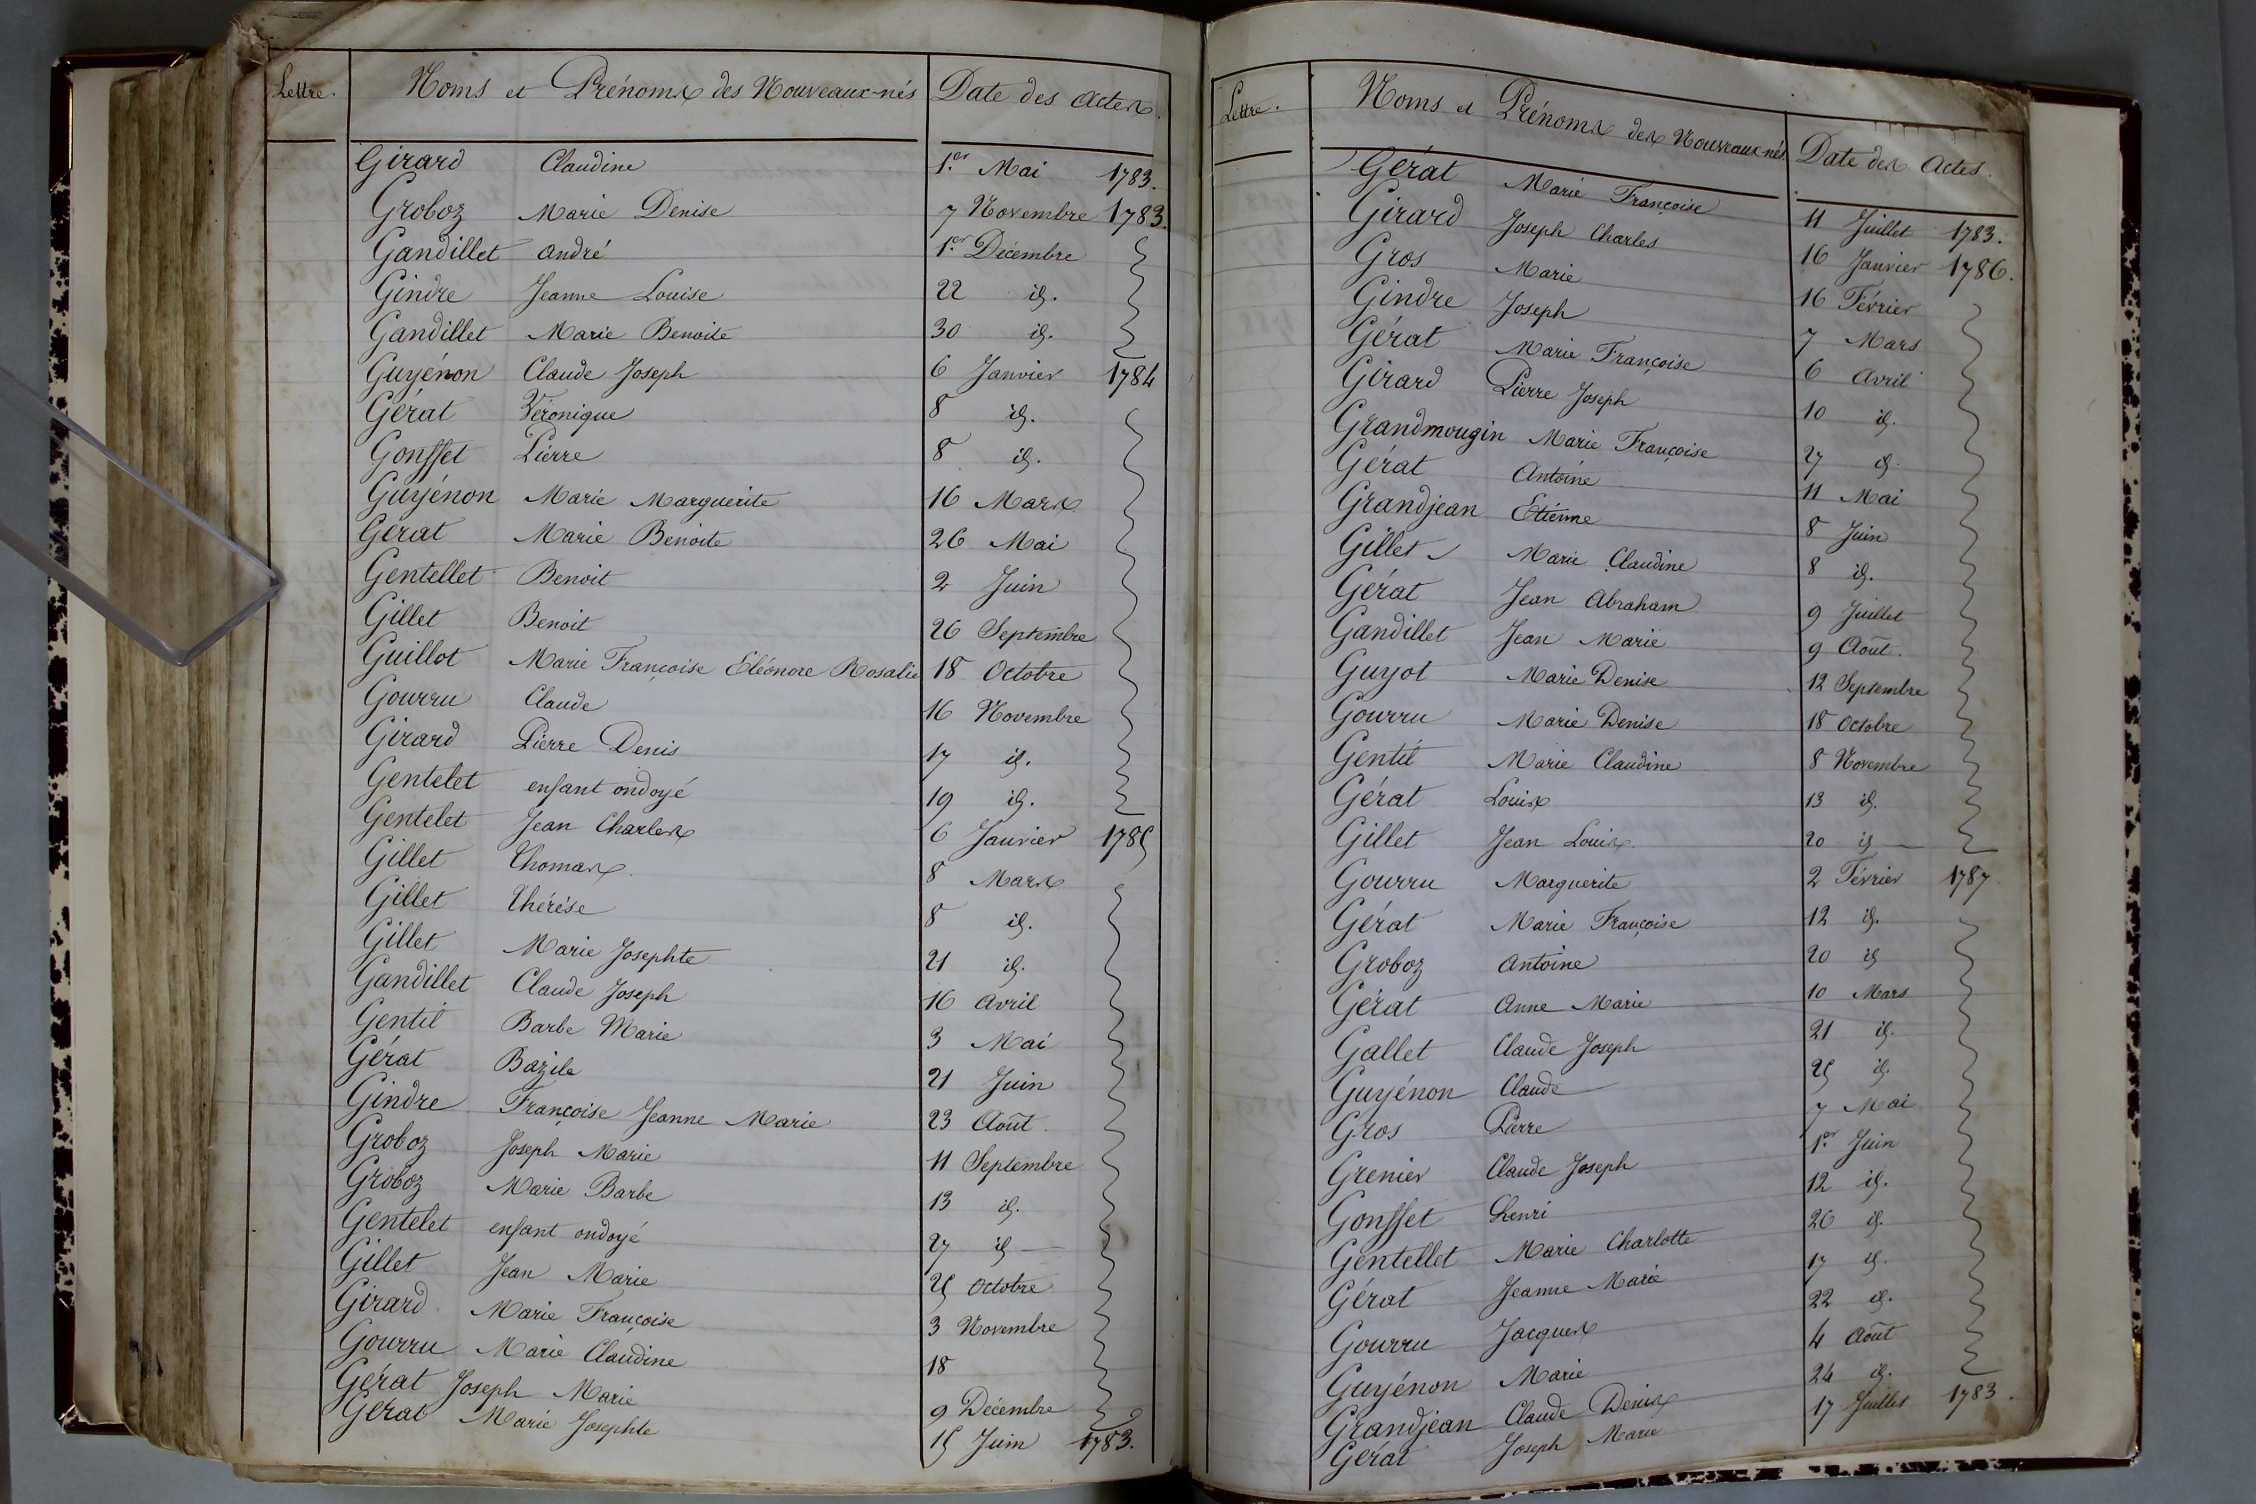 Lettre. Noms et Prénoms des Nouveaux-nés Date des Actes.
Girard Claudine 1.er Mai 1783.
Groboz Marie Denise 7 Novembre 1783.
Gandillet André 1.er Décembre
Gindre Jeanne Louise 22 id.
Gandillet Marie Benoite 30 id.
Guyénon Claude Joseph 6 Janvier 1784
Gérat Véronique 8 id.
Gonsset Pierre 8 id.
Guyénon Marie Marguerite 16 Mars
Gérat Marie Benoite 26 Mai
Gentellet Benoit 2 Juin
Gillet Benoit 26 Septembre
Guillot Marie Françoise Eléonore Rosalie 18 Octobre
Gourru Claude 16 Novembre
Girard Pierre Denis 17 id.
Gentelet enfant ondoyé 19 id.
Gentelet Jean Charles 6 Janvier 1785
Gillet Thomas 8 Mars
Gillet Thérése 8 id.
Gillet Marie Josephte 21 id.
Gandillet Claude Joseph 16 Avril
Gentil Barbe Marie 3 Mai
Gérat Bazile 21 Juin
Gindre Françoise Jeanne Marie 23 Août
Groboz Joseph Marie 11 Septembre
Groboz Marie Barbe 13 id.
Gentelet enfant ondoyé 27 id
Gillet Jean Marie 25 Octobre
Girard Marie Françoise 3 Novembre
Gourru Marie Claudine 18
Gérat Joseph Marie 9 Décembre
Gérat Marie Josephte 15 Juin 1783.
Lettre. Noms et Prénoms des Nouveaux-nés Date des Actes.
Gérat Marie Françoise 11 Juillet 1783.
Girard Joseph Charles 16 Janvier 1786.
Gros Marie 16 Février
Gindre Joseph 7 Mars
Gérat Marie Françoise 6 Avril
Girard Pierre Joseph 10 id.
Grandmougin Marie Françoise 27 id.
Gérat Antoine 11 Mai
Grandjean Etienne 8 Juin
Gillet Marie Claudine 8 id.
Gérat Jean Abraham 9 Juillet
Gandillet Jean Marie 9 Août.
Guyot Marie Denise 12 Septembre
Gourru Marie Denise 18 Octobre
Gentil Marie Claudine 8 Novembre
Gérat Louis 13 id.
Gillet Jean Louis 20 id
Gourru Marguerite 2 Février 1787
Gérat Marie Françoise 12 id.
Groboz Antoine 20 id
Gérat Anne Marie 10 Mars
Gallet Claude Joseph 21 id.
Guyénon Claude 25 id.
Gros Pierre 7 Mai
Grenier Claude Joseph 1.er Juin
Gonsset henri 12 id.
Gentellet Marie Charlotte 26 id.
Gérat Jeanne Marie 17 id.
Gourru Jacques 22 id.
Guyénon Marie 4 Août
Grandjean Claude Denis 24 id.
Gérat Joseph Marie 17 Juillet 1783.